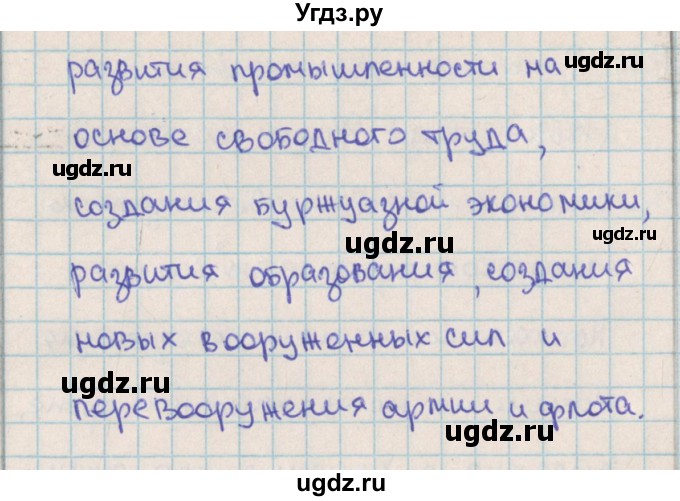 Угдз.ру
развития промышленности на
ugdz.ru
основе свободного труда,
ugdz.ru
создания буржуазной экономики,
ugdz.ru
ugdz.ru
развития образования, создания
новых вооруженных сил и
ugdz.ru
перевооружения армии и флота.
ugdz.ru
ugdz.ru